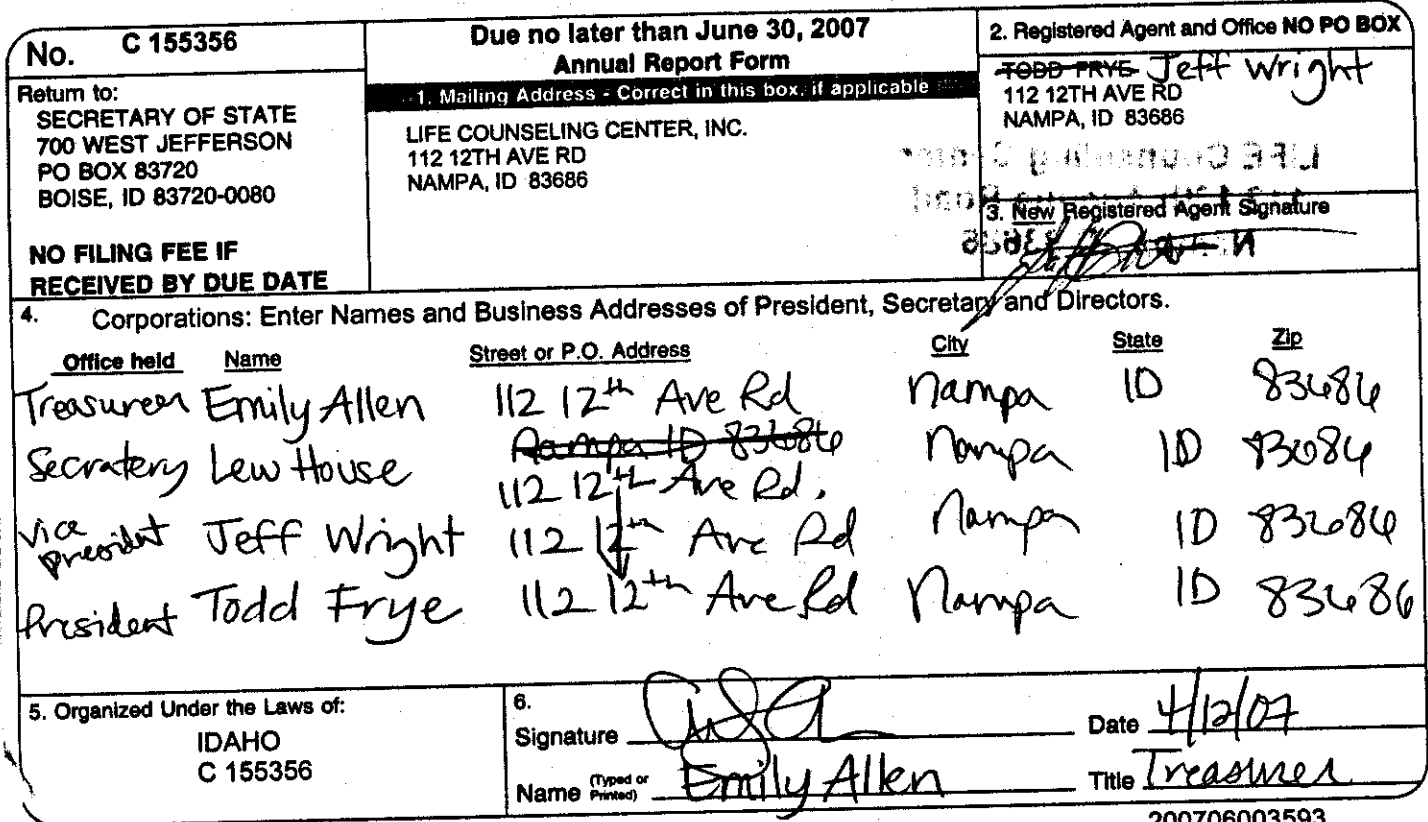 No. C 155356
Return to:
SECRETARY OF STATE
700 WEST JEFFERSON
PO BOX 83720
BOISE, ID 83720-0080
NO FILING FEE IF
RECEIVED BY DUE DATE
Due no later than June 30, 2007
Annual Report Form
1. Mailing Address - Correct in this box, if applicable
LIFE COUNSELING CENTER, INC.
112 12TH AVE RD
NAMPA, ID 83686
2. Registered Agent and Office NO PO BOX
TODD FRYE Jeff Wright
112 12TH AVE RD
NAMPA, ID 83686
LIFE Counseling Center
3. New Registered Agent Signature
4. Corporations: Enter Names and Business Addresses of President, Secretary and Directors.
Office held Name Street or P.O. Address City State Zip
Treasurer Emily Allen 112 12th Ave Rd Nampa ID 83686
Nampa ID 83686
Secratery Lew House 112 12th Ave Rd. Nampa ID 83686
Vice president Jeff Wright 112 12th Ave Rd Nampa ID 83686
President Todd Frye 112 12th Ave Rd Nampa ID 83686
5. Organized Under the Laws of:
IDAHO
C 155356
6.
Signature
Date 4/12/07
Name (Typed or Printed) Emily Allen
Title Treasurer
200706003593